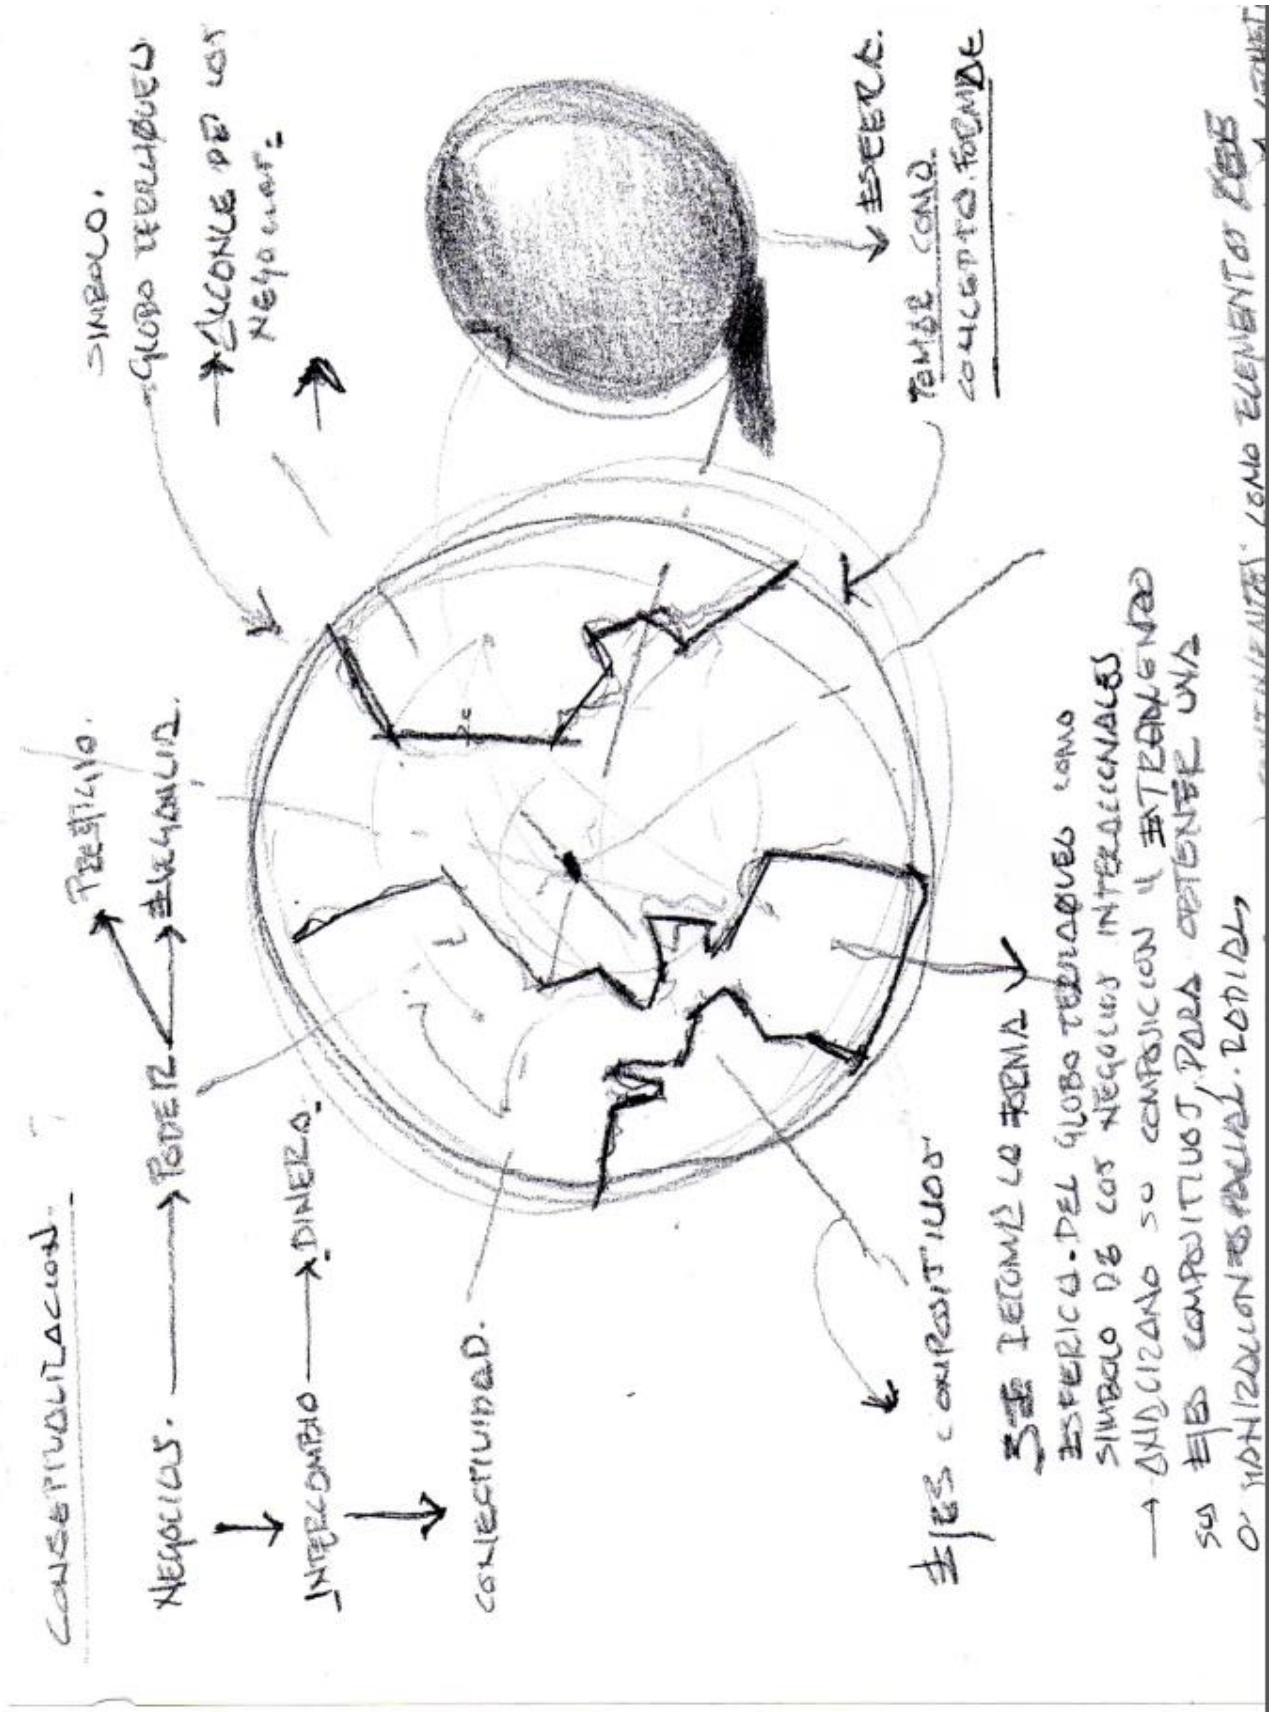 CONSEPTUALIZACION.
NEGOCIOS. → PODER → PRESTIGIO.
→ ELEGANCIA.
INTERCAMBIO → DINERO.
CONECTIVIDAD.
SIMBOLO.
GLOBO TERRAQUEO
→ ALCANCE DE LOS
NEGOCIOS.
ESFERA.
TOMAR COMO
CONCEPTO FORMAL
EJES COMPOSITIVOS
SE RETOMA LA FORMA
ESFERICA. DEL GLOBO TERRAQUEO COMO
SIMBOLO DE LOS NEGOCIOS INTERNACIONALES
→ ANALIZANDO SU COMPOSICION Y EXTRAYENDO
SUS EJES COMPOSITIVOS, PARA OBTENER UNA
ORGANIZACION ESPACIAL. RADIAL,
CONTINENTES COMO ELEMENTOS